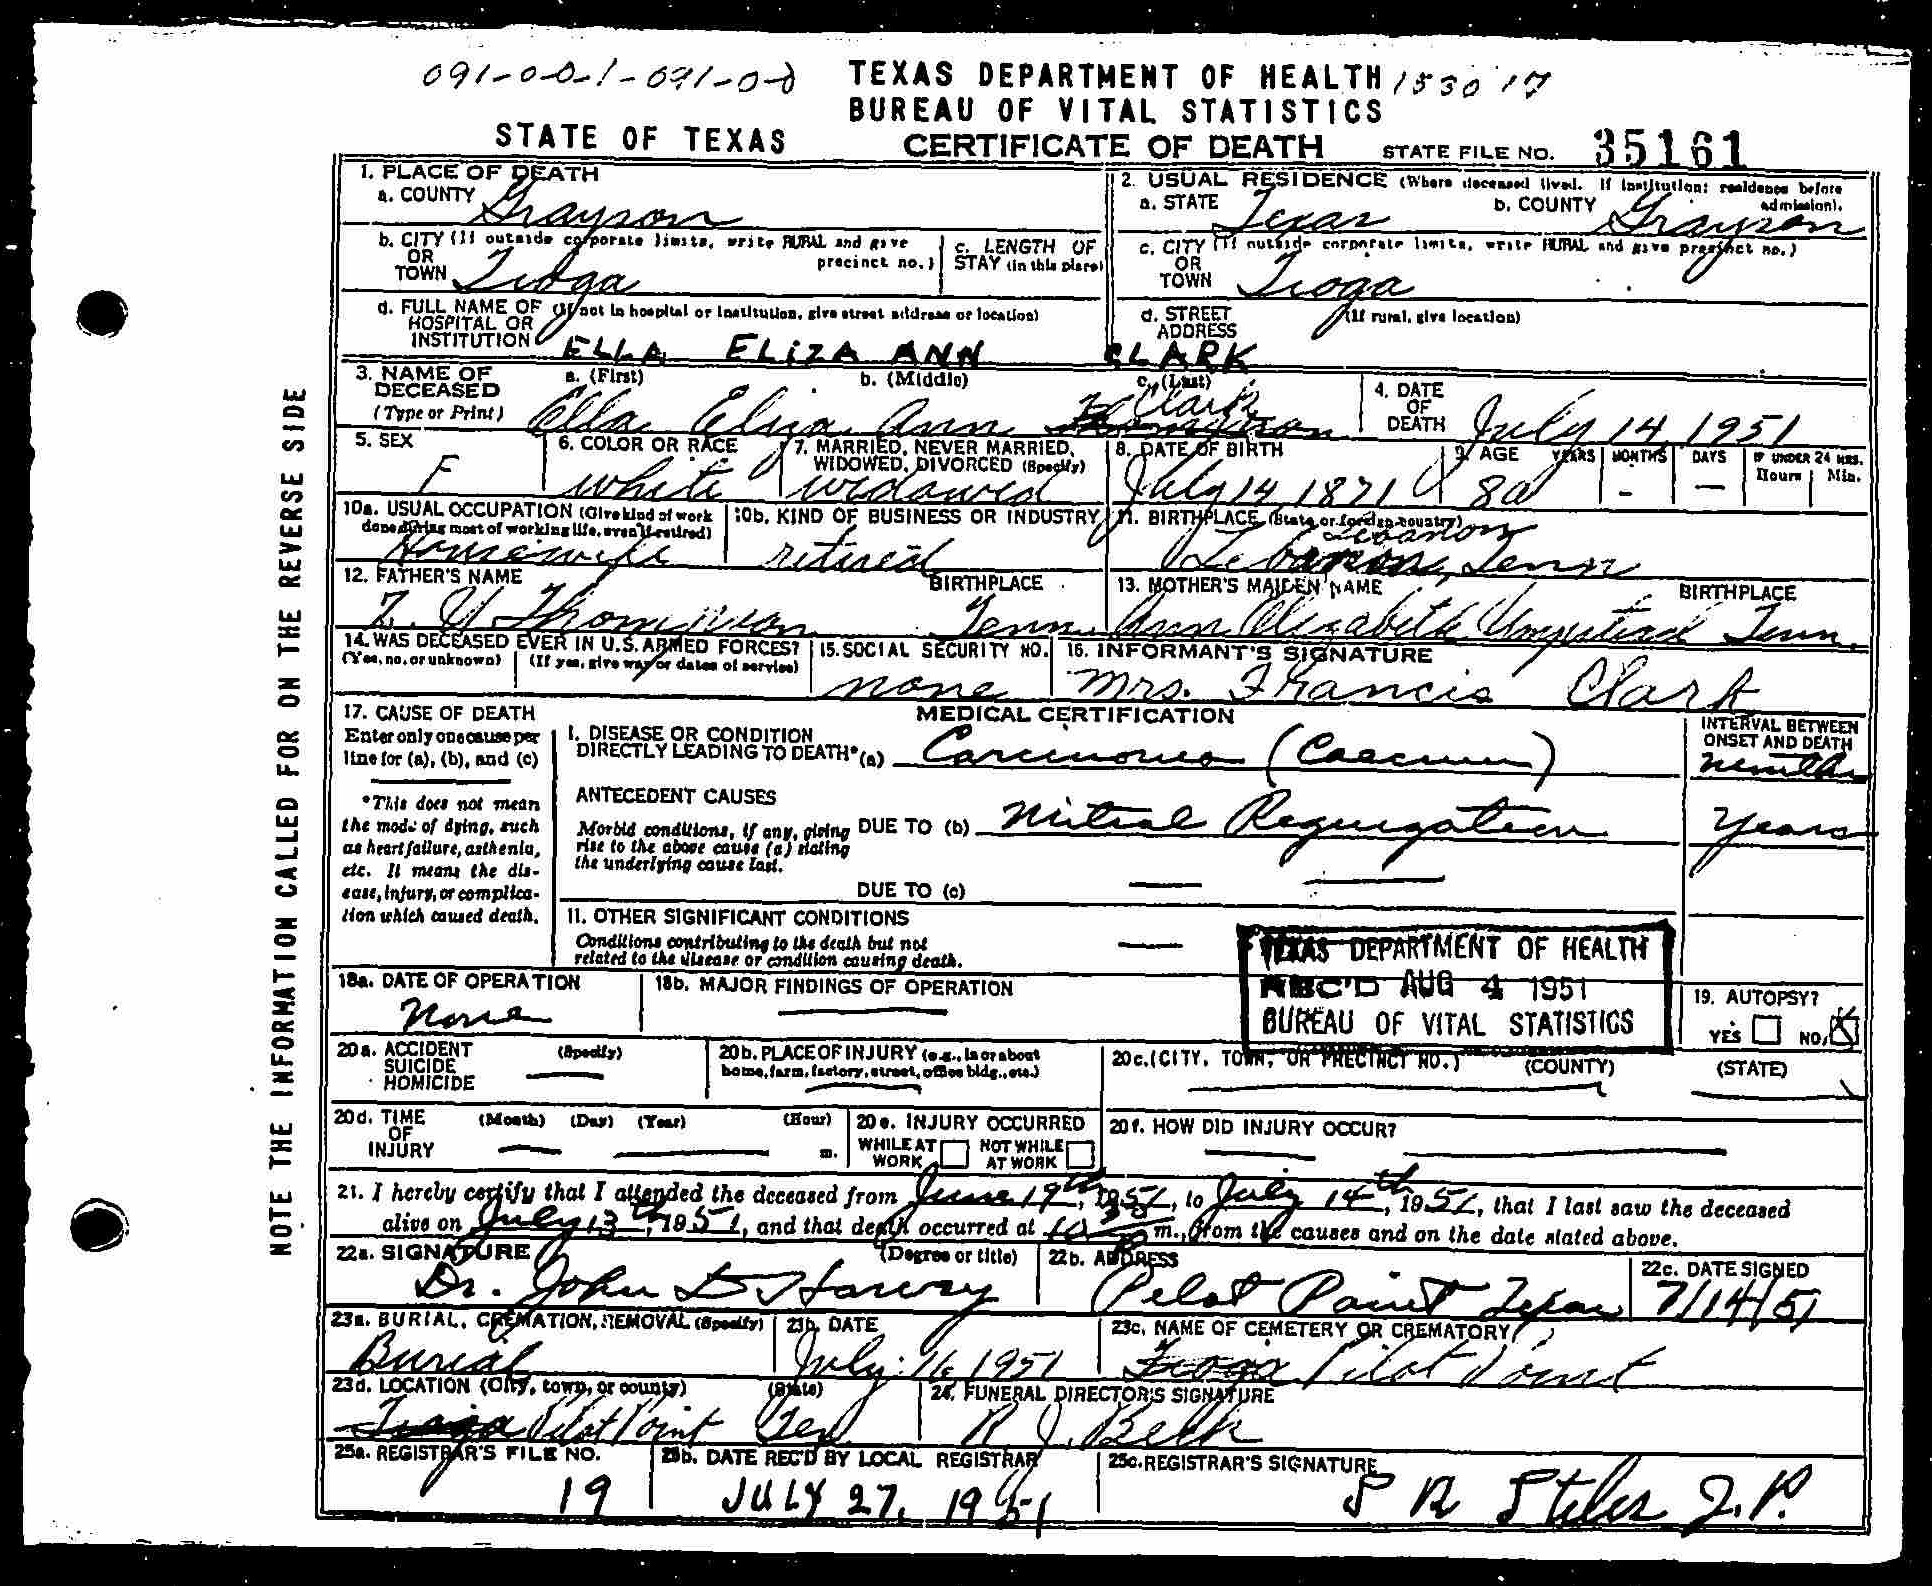 091-0-0-1-091-0-0
TEXAS DEPARTMENT OF HEALTH 153017
BUREAU OF VITAL STATISTICS
STATE OF TEXAS CERTIFICATE OF DEATH STATE FILE NO. 35161
NOTE THE INFORMATION CALLED FOR ON THE REVERSE SIDE
1. PLACE OF DEATH
a. COUNTY Grayson
2. USUAL RESIDENCE (Where deceased lived. If institution: residence before admission).
a. STATE Texas b. COUNTY Grayson
b. CITY (If outside corporate limits, write RURAL and give precinct no.)
OR TOWN Tioga
c. LENGTH OF STAY (in this place)
c. CITY (If outside corporate limits, write RURAL and give precinct no.)
OR TOWN Tioga
d. FULL NAME OF HOSPITAL OR INSTITUTION (If not in hospital or institution, give street address or location)
d. STREET ADDRESS (If rural, give location)
ELLA ELIZA ANN CLARK
3. NAME OF DECEASED (Type or Print)
a. (First) b. (Middle) c. (Last)
Ella Eliza Ann Clark
4. DATE OF DEATH July 14, 1951
5. SEX F
6. COLOR OR RACE white
7. MARRIED, NEVER MARRIED, WIDOWED, DIVORCED (Specify) widowed
8. DATE OF BIRTH July 14 1871
9. AGE YEARS 80 MONTHS - DAYS - IF UNDER 24 HRS. Hours Min.
10a. USUAL OCCUPATION (Give kind of work done during most of working life, even if retired) Housewife
10b. KIND OF BUSINESS OR INDUSTRY retired
11. BIRTHPLACE (State or foreign country)
Lebanon
Lebanon, Tenn
12. FATHER'S NAME BIRTHPLACE
Thomason Tenn
13. MOTHER'S MAIDEN NAME BIRTHPLACE
Ann Elizabeth Umpstead Tenn.
14. WAS DECEASED EVER IN U.S. ARMED FORCES?
(Yes, no, or unknown) (If yes, give war or dates of service)
15. SOCIAL SECURITY NO. none
16. INFORMANT'S SIGNATURE Mrs. Francis Clark
17. CAUSE OF DEATH
Enter only one cause per line for (a), (b), and (c)
*This does not mean the mode of dying, such as heart failure, asthenia, etc. It means the disease, injury, or complication which caused death.
MEDICAL CERTIFICATION
INTERVAL BETWEEN ONSET AND DEATH
I. DISEASE OR CONDITION DIRECTLY LEADING TO DEATH* (a) Carcinoma (Caecum)
ANTECEDENT CAUSES
Morbid conditions, if any, giving rise to the above cause (a) stating the underlying cause last.
DUE TO (b) Mitral Regurgitation Years
DUE TO (c) — —
II. OTHER SIGNIFICANT CONDITIONS
Conditions contributing to the death but not related to the disease or condition causing death. —
TEXAS DEPARTMENT OF HEALTH
REC'D AUG 4 1951
BUREAU OF VITAL STATISTICS
18a. DATE OF OPERATION None
18b. MAJOR FINDINGS OF OPERATION —
19. AUTOPSY?
YES NO X
20a. ACCIDENT SUICIDE HOMICIDE (Specify) —
20b. PLACE OF INJURY (e.g., in or about home, farm, factory, street, office bldg., etc.) —
20c. (CITY, TOWN, OR PRECINCT NO.) (COUNTY) (STATE)
20d. TIME OF INJURY (Month) (Day) (Year) (Hour) m.
20e. INJURY OCCURRED
WHILE AT WORK NOT WHILE AT WORK
20f. HOW DID INJURY OCCUR?
21. I hereby certify that I attended the deceased from June 19th, 1951, to July 14th, 1951, that I last saw the deceased
alive on July 13th, 1951, and that death occurred at m., from the causes and on the date stated above.
22a. SIGNATURE (Degree or title)
Dr. John D Harvey
22b. ADDRESS Pilot Point Texas
22c. DATE SIGNED 7/14/51
23a. BURIAL, CREMATION, REMOVAL (Specify) Burial
23b. DATE July 16, 1951
23c. NAME OF CEMETERY OR CREMATORY
Tioga Pilot Point
23d. LOCATION (City, town, or county) (State)
Tioga Pilot Point Tex
24. FUNERAL DIRECTOR'S SIGNATURE
R J. Belk
25a. REGISTRAR'S FILE NO. 19
25b. DATE REC'D BY LOCAL REGISTRAR JULY 27, 1951
25c. REGISTRAR'S SIGNATURE
S R Stiles J.P.